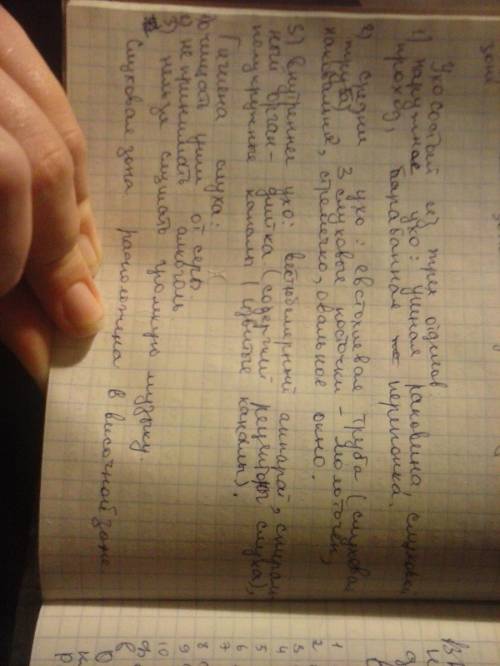 Ухо состоит из трех отделов
1) наружное ухо: ушная раковина, слуховой
проход, барабанная перепонка.
2) среднее ухо: евстахиевая труба (слуховая
труба) 3 слуховые косточки - молоточек,
наковальня, стремечко, овальное окно.
3) внутреннее ухо: вестибулярный аппарат,
орган - улитка (содержит рецепторы слуха),
полукружные каналы (извитые каналы).
Гигиена слуха:
1) очищать уши от серы
2) не принимать алкоголь
3) нельзя слушать громкую музыку.
Слуховая зона расположена в височной зоне.
зоне
1
2
3
4
5
6
7
8
9
10